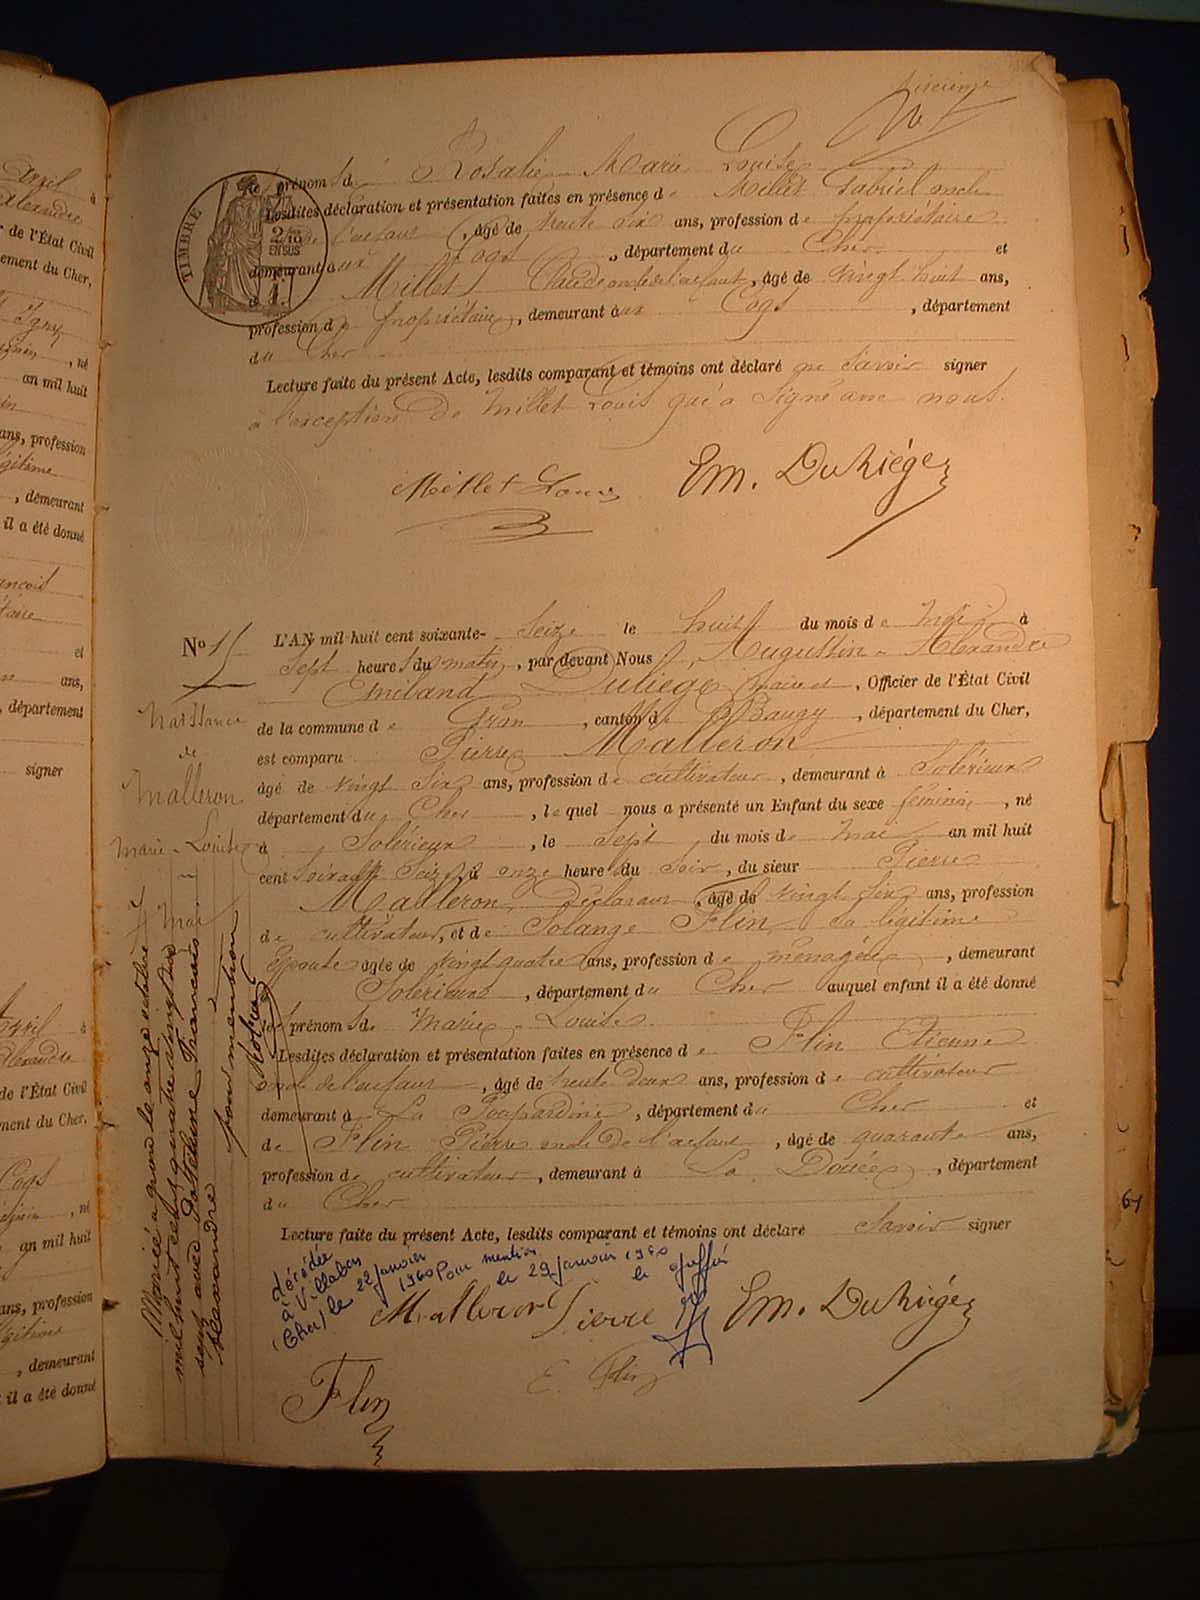 sixième
le prénom de Rosalie Marie Louise
Lesdites déclaration et présentation faites en présence de Millet Gabriel oncle
de l'enfant, âgé de trente six ans, profession de propriétaire
demeurant aux Cogs, département du Cher et
d Millet Claude oncle de l'enfant, âgé de vingt huit ans,
profession de propriétaire, demeurant aux Cogs, département
du Cher
Lecture faite du présent Acte, lesdits comparant et témoins ont déclaré ne savoir signer
à l'exception de Millet Louis qui a signé avec nous.
TIMBRE
2/10
EN SUS
Millet Louis Em. Duliège
No 15
Naissance
de
Malleron
Marie-Louise
7 Mai
L'AN mil-huit cent soixante- Seize le huit du mois de Mai à
Sept heures du matin, par devant Nous, Augustin-Alexandre
Emiland Duliège maire et, Officier de l'État Civil
de la commune de Gron, canton de Baugy, département du Cher,
est comparu Pierre Malleron
âgé de vingt Six ans, profession de cultivateur, demeurant à Solérieux
département du Cher, lequel nous a présenté un Enfant du sexe féminin, né
à Solérieux, le Sept du mois de Mai an mil huit
cent Soixante Seize à onze heure du Soir, du sieur Pierre
Malleron Déclarant, âgé de vingt Six ans, profession
de cultivateur, et de Solange Flin, sa légitime
Epouse âgée de vingt quatre ans, profession de ménagère, demeurant
Solérieux, département du Cher auquel enfant il a été donné
les prénoms de Marie-Louise
Lesdites déclaration et présentation faites en présence de Flin Etienne
oncle de l'enfant, âgé de trente deux ans, profession de cultivateur
demeurant à La Poupardine, département du Cher et
de Flin Pierre oncle de l'enfant, âgé de quarante ans,
profession de cultivateur, demeurant à La Douée, département
du Cher
Lecture faite du présent Acte, lesdits comparant et témoins ont déclaré Savoir signer
Malleron Pierre Em. Duliège
E. Flin
Flin
décédée
à Villabon
(Cher) le 22 janvier
1960 Pour mention
le 29 janvier 1960
le greffier
Mariée à Gron le onze octobre
mil huit cent quatre vingt dix
sept avec François
Alexandre
pour mention
61
Avril à
Alexandre
er de l'État Civil
ement du Cher,
, né
an mil huit
ans, profession
légitime
, demeurant
il a été donné
François
et
ans,
, département
signer
Avril à
Alexandre
de l'État Civil
ment du Cher,
Cogs
, né
an mil huit
ans, profession
légitime
, demeurant
il a été donné